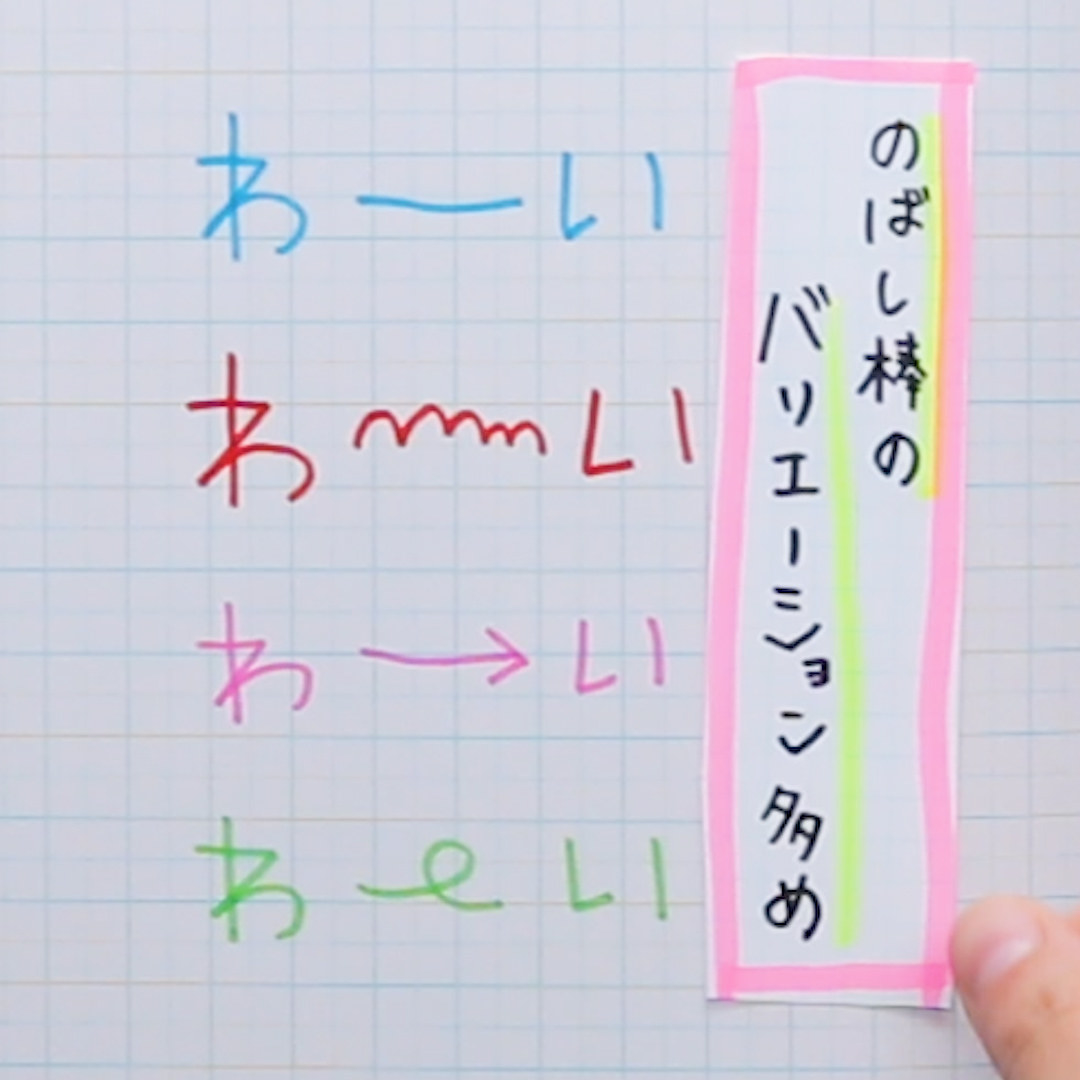 わーいい
わ〰いい
わ→いい
わーいい
のばし棒の
バリエーション多め